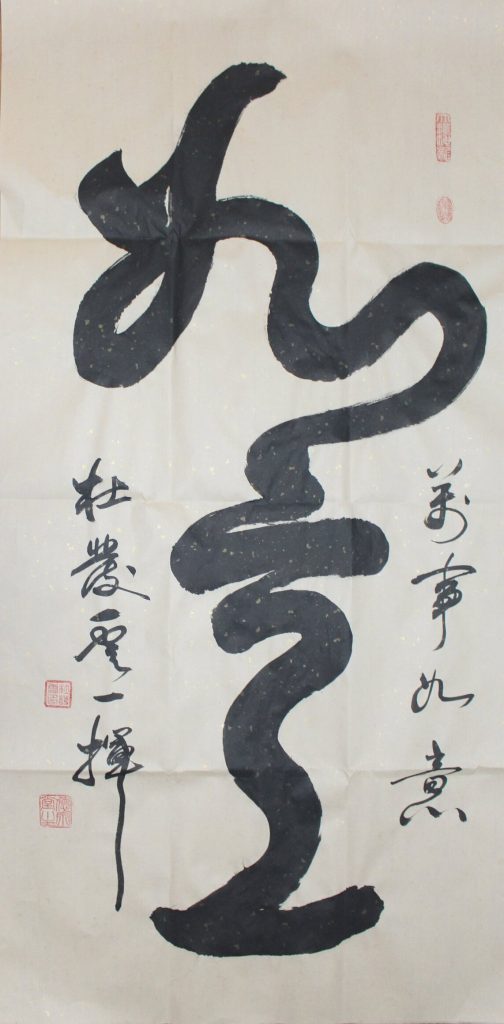 萬事如意
如意
杜發雲一揮